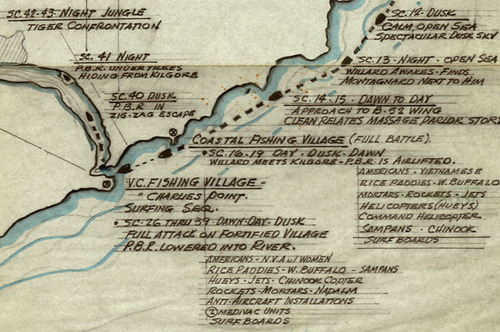 SC. 42-43 NIGHT JUNGLE
TIGER CONFRONTATION
SC. 41 NIGHT
P.B.R. UNDER TREES
HIDING FROM KILGORE
SC. 40 DUSK
P.B.R IN
ZIG-ZAG ESCAPE
SC. 12 - DUSK
CALM, OPEN SEA
SPECTACULAR DUSK SKY
SC. 13 - NIGHT - OPEN SEA
WILLARD AWAKES - FINDS
MONTAGNARD NEXT TO HIM
SC. 14 - 15 - DAWN TO DAY
APPROACH TO B-52 WING
CLEAN RELATES MASSAGE PARLOR STORY
COASTAL FISHING VILLAGE (FULL BATTLE).
• SC. 16 - 19 DAY - DUSK - DAWN
WILLARD MEETS KILGORE - P.B.R. IS AIRLIFTED.
AMERICANS - VIETNAMESE
RICE PADDIES - W. BUFFALO
MORTARS - ROCKETS - JETS
HELICOPTERS (HUEYS)
COMMAND HELICOPTER
SAMPANS - CHINOOK
SURF BOARDS
V.C. FISHING VILLAGE -
"CHARLIES" POINT.
SURFING SEQ.
• SC - 26 THRU 39 - DAWN - DAY - DUSK
FULL ATTACK ON FORTIFIED VILLAGE
P.B.R. LOWERED INTO RIVER.
AMERICANS - N.V.A w/ WOMEN
RICE PADDIES - W. BUFFALO - SAMPANS
HUEYS - JETS - CHINOOK COPTER
ROCKETS - MORTARS - NAPALM
ANTI-AIRCRAFT INSTALLATIONS
② MEDIVAC UNITS
SURF BOARDS